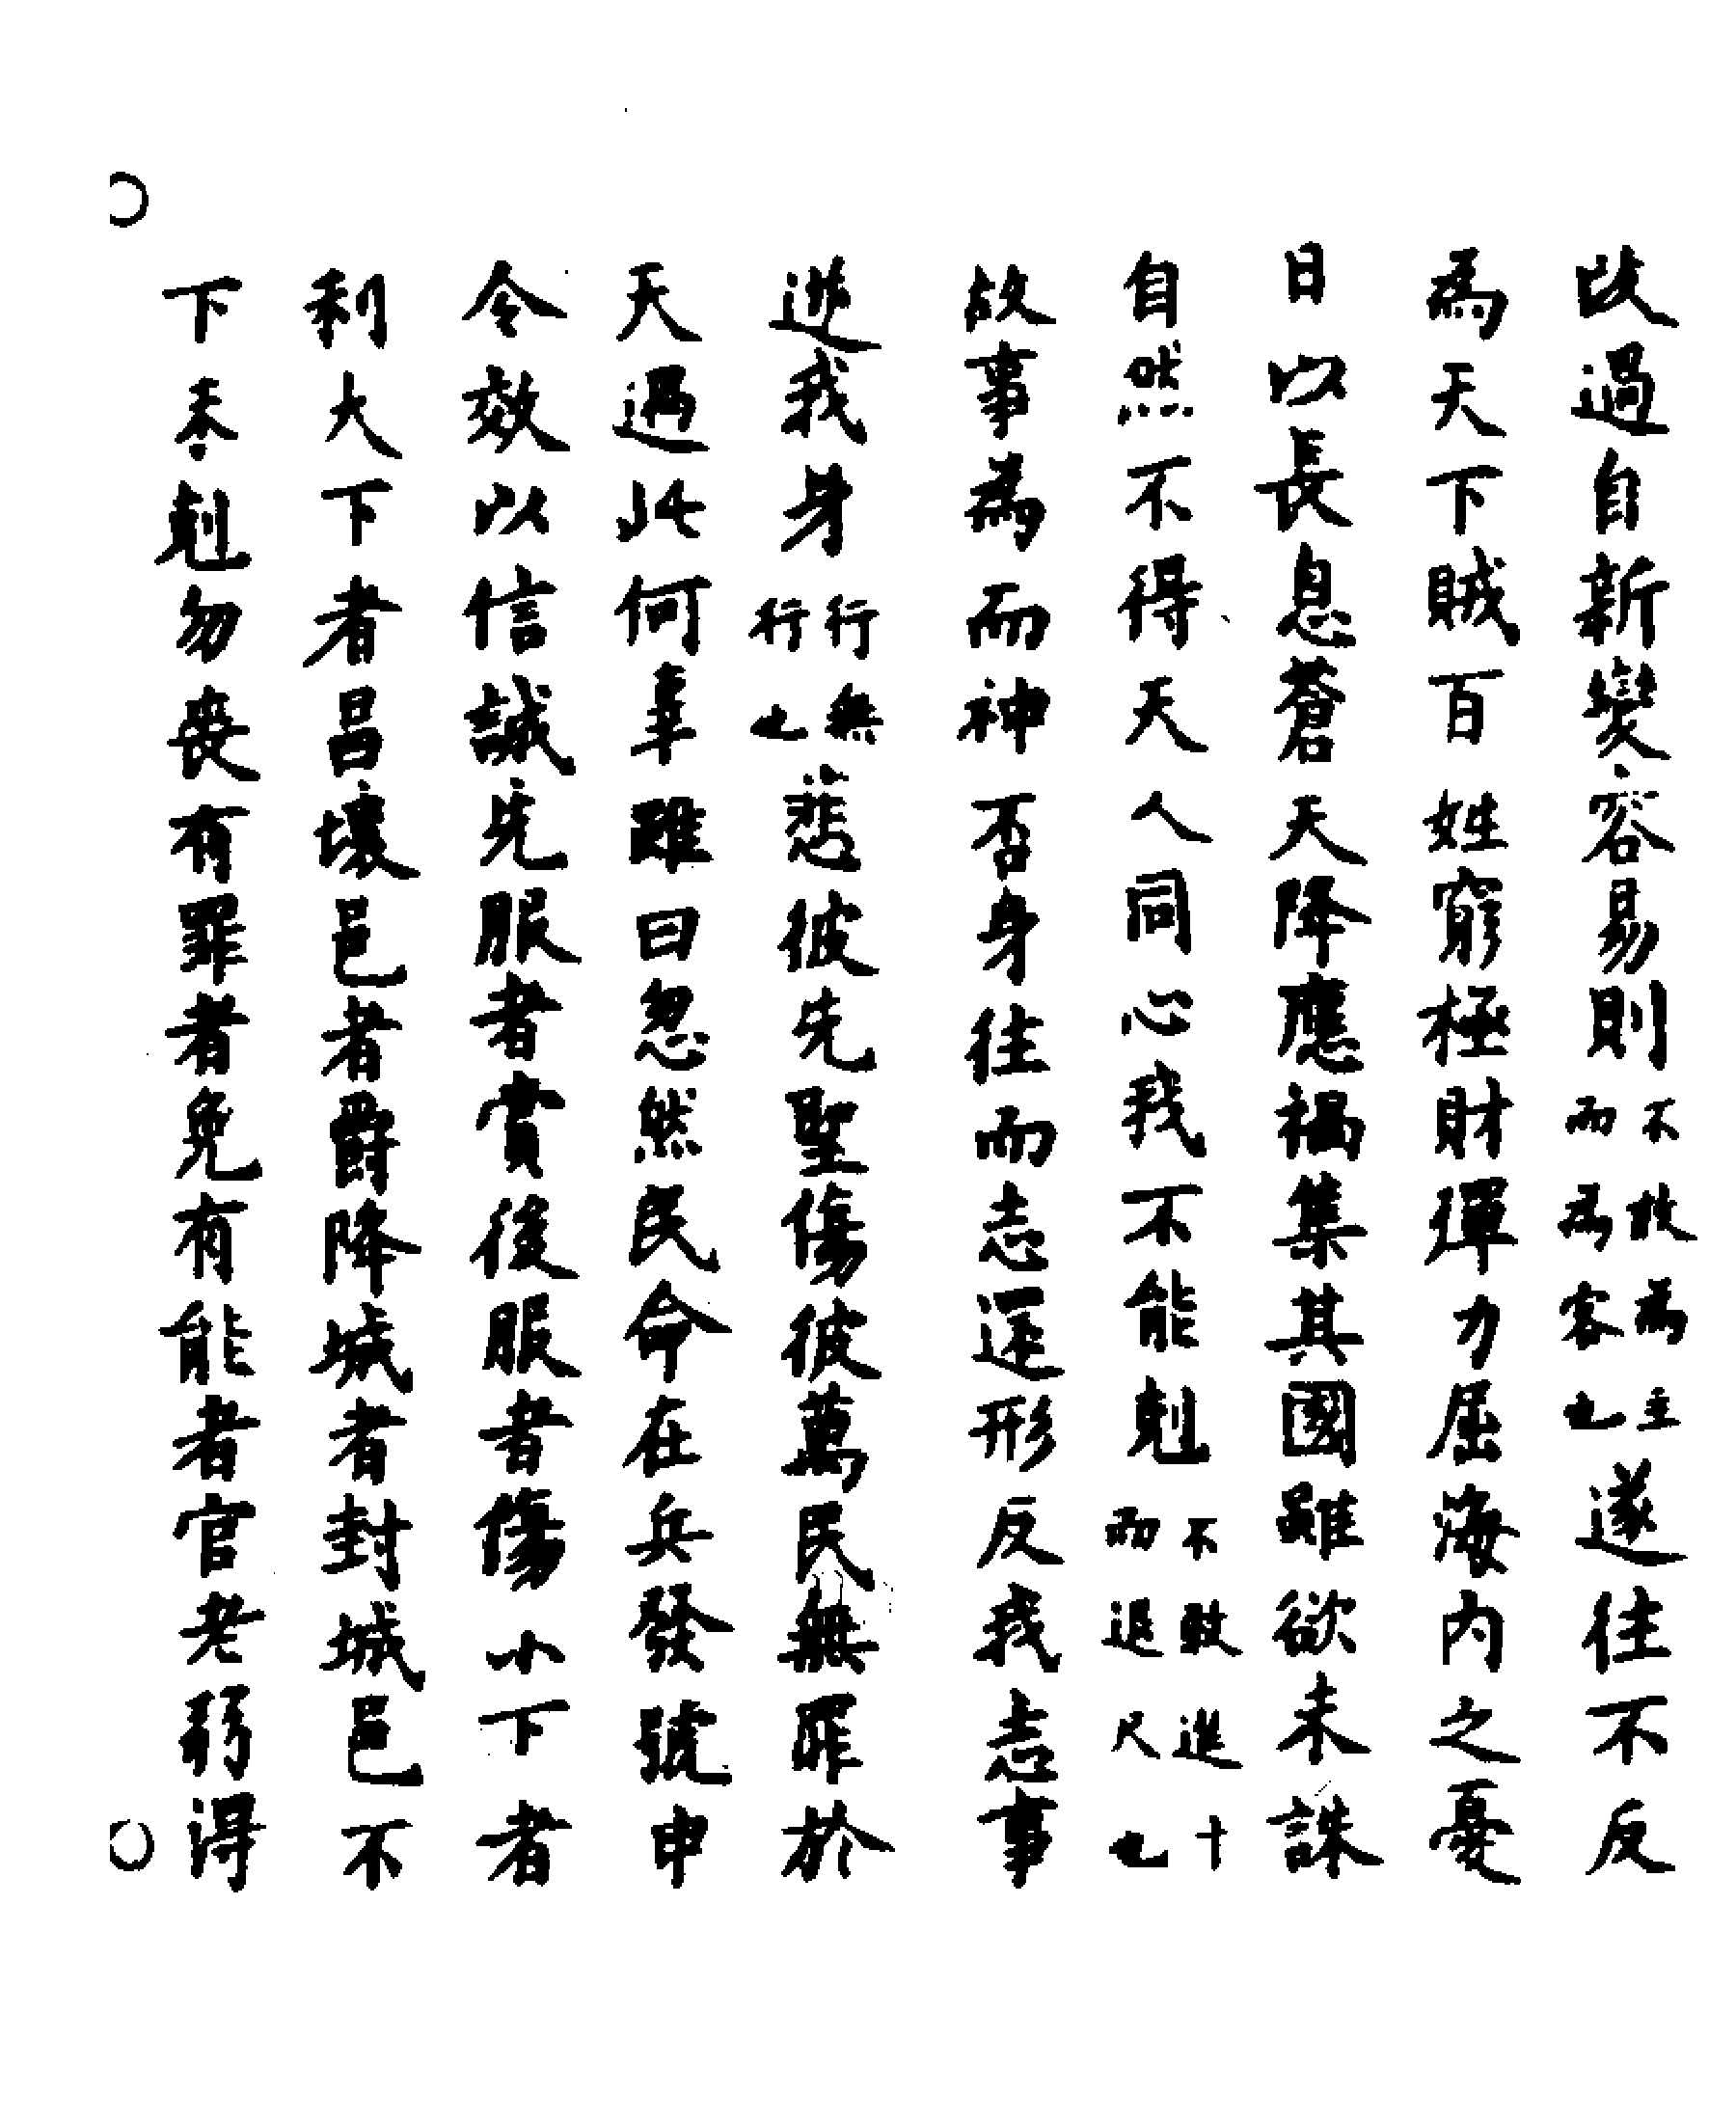 改過自新變容易則不敢為主而為客也遂往不反
為天下賊百姓窮極財殫力屈海內之憂
日以長息蒼天降應禍集其國雖欲未誅
自然不得天人同心我不能剋不敢進十而退尺也
故事為而神否身往而志還形反我志事
逆我身行無行也悲彼先聖傷彼萬民無罪於
天遇此何辜雖曰忽然民命在兵發號申
令效以信誠先服者賞後服者傷小下者
利大下者昌壞邑者爵降城者封城邑不
下未剋勿喪有罪者免有能者官老弱得